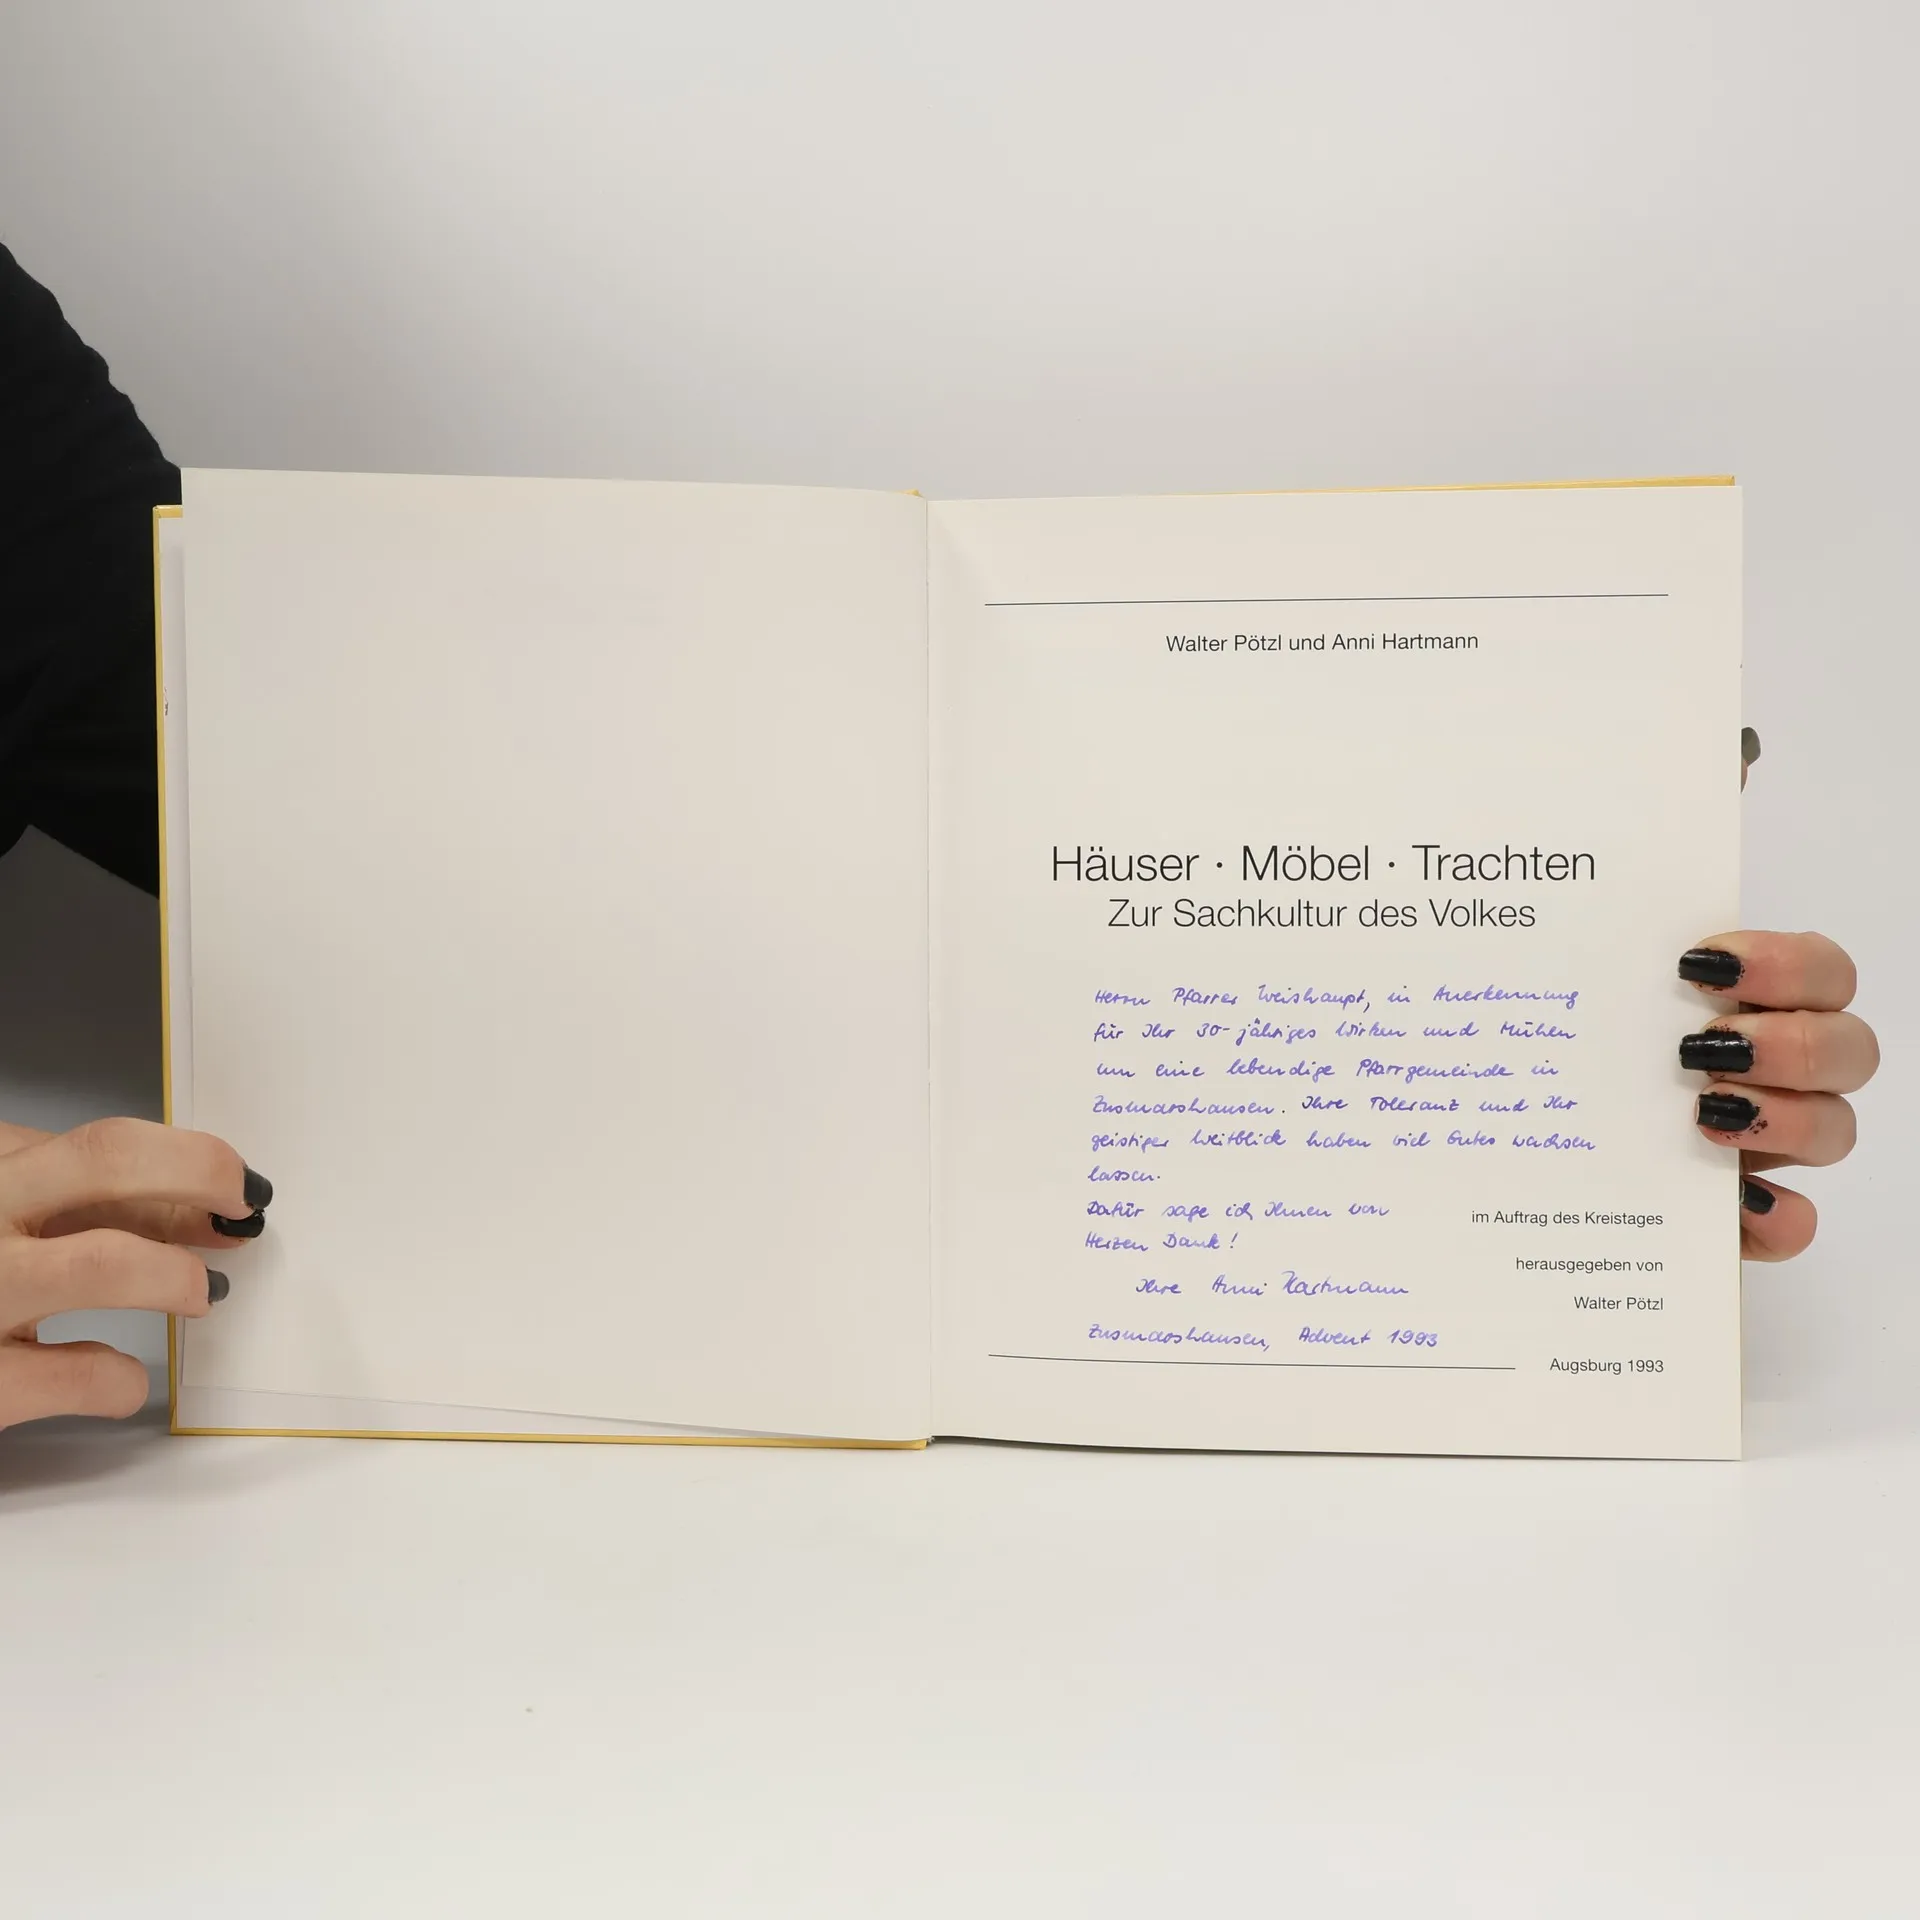 Walter Pötzl und Anni Hartmann
Häuser · Möbel · Trachten
Zur Sachkultur des Volkes
Herrn Pfarrer Weishaupt, in Anerkennung
für Ihr 30-jähriges Wirken und Mühen
um eine lebendige Pfarrgemeinde in
Zusmarshausen. Ihre Toleranz und Ihr
geistiger Weitblick haben viel Gutes wachsen
lassen.
Dafür sage ich Ihnen von
Herzen Dank!
Ihre Anni Hartmann
Zusmarshausen, Advent 1993
im Auftrag des Kreistages
herausgegeben von
Walter Pötzl
Augsburg 1993